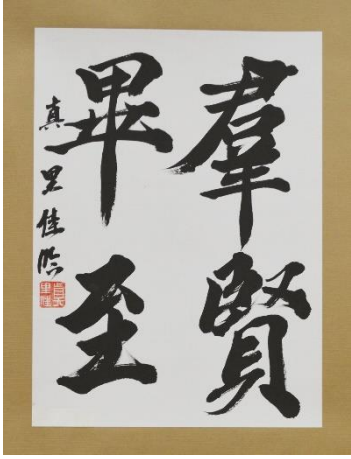 羣賢
畢至
真里佳臨